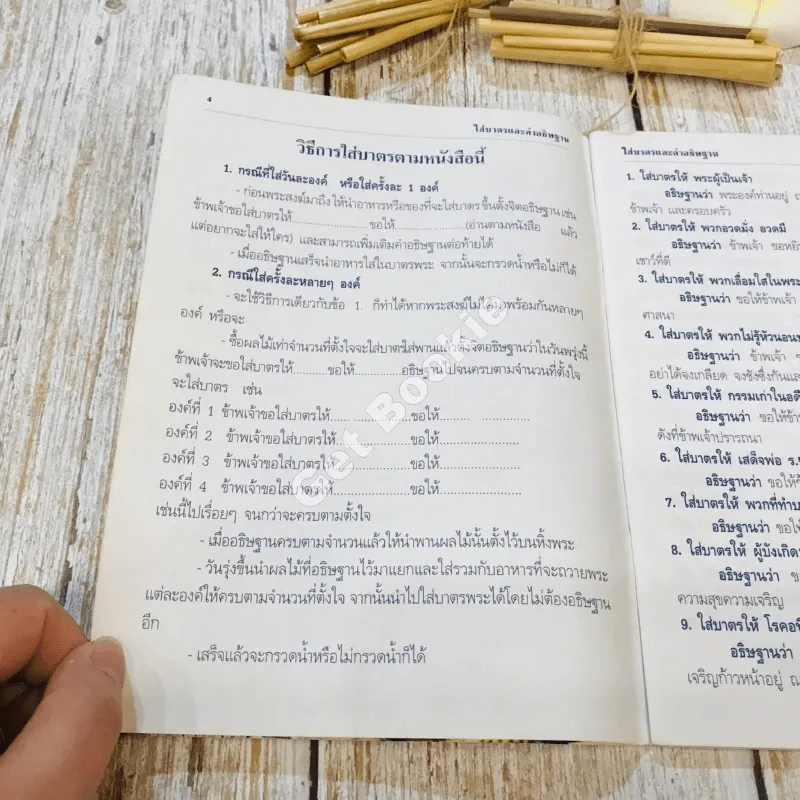 4
ใส่บาตรและคำอธิษฐาน
วิธีการใส่บาตรตามหนังสือนี้
1. กรณีที่ใส่วันละองค์ หรือใส่ครั้งละ 1 องค์
- ก่อนพระสงฆ์มาถึงให้นำอาหารหรือของที่จะใส่บาตร ขึ้นตั้งจิตอธิษฐาน เช่น
ข้าพเจ้าขอใส่บาตรให้......................ขอให้....................(อ่านตามหนังสือ แล้ว
แต่อยากจะใส่ให้ใคร) และสามารถเพิ่มเติมคำอธิษฐานต่อท้ายได้
- เมื่ออธิษฐานเสร็จนำอาหารใส่ในบาตรพระ จากนั้นจะกรวดน้ำหรือไม่ก็ได้
2. กรณีใส่ครั้งละหลายๆ องค์
- จะใช้วิธีการเดียวกับข้อ 1. ก็ทำได้หากพระสงฆ์ไม่ได้มาพร้อมกันหลายๆ
องค์ หรือจะ
- ซื้อผลไม้เท่าจำนวนที่ตั้งใจจะใส่บาตรใส่พานแล้วตั้งจิตอธิษฐานว่าในวันพรุ่งนี้
ข้าพเจ้าจะขอใส่บาตรให้..........ขอให้............อธิษฐานไปจนครบตามจำนวนที่ตั้งใจ
จะใส่บาตร เช่น
องค์ที่ 1 ข้าพเจ้าขอใส่บาตรให้......................ขอให้......... ...........
องค์ที่ 2 ข้าพเจ้าขอใส่บาตรให้......................ขอให้......................
องค์ที่ 3 ข้าพเจ้าขอใส่บาตรให้......................ขอให้......................
องค์ที่ 4 ข้าพเจ้าขอใส่บาตรให้......................ขอให้......................
เช่นนี้ไปเรื่อยๆ จนกว่าจะครบตามตั้งใจ
- เมื่ออธิษฐานครบตามจำนวนแล้วให้นำพานผลไม้นั้นตั้งไว้บนหิ้งพระ
- วันรุ่งขึ้นนำผลไม้ที่อธิษฐานไว้มาแยกและใส่รวมกับอาหารที่จะถวายพระ
แต่ละองค์ให้ครบตามจำนวนที่ตั้งใจ จากนั้นนำไปใส่บาตรพระได้โดยไม่ต้องอธิษฐาน
อีก
- เสร็จแล้วจะกรวดน้ำหรือไม่กรวดน้ำก็ได้
Get Bookie
ใส่บาตรและคำอธิษฐาน
1. ใส่บาตรให้ พระผู้เป็นเจ้า
อธิษฐานว่า พระองค์ท่านอยู่
ข้าพเจ้า และครอบครัว
2. ใส่บาตรให้ พวกอวดมั่ง อวดมี
อธิษฐานว่า ข้าพเจ้า
เชาว์ที่ดี
3. ใส่บาตรให้ พวกเลื่อมใสในพระ
อธิษฐานว่า ขอให้ข้าพเจ้า
ศาสนา
4. ใส่บาตรให้ พวกไม่รู้หัวนอน
อธิษฐานว่า ข้าพเจ้า
อย่าได้จงเกลียด จงชังซึ่งกันและ
5. ใส่บาตรให้ กรรมเก่าในอดี
อธิษฐานว่า ขอให้ข้า
ดังที่ข้าพเจ้าปรารถนา
6. ใส่บาตรให้ เสด็จพ่อ ร.
อธิษฐานว่า ขอให้
7. ใส่บาตรให้ พวกที่ทำบ
อธิษฐานว่า ขอให้
8. ใส่บาตรให้ ผู้บังเกิด
อธิษฐานว่า
ความสุขความเจริญ
9. ใส่บาตรให้ โรค
อธิษฐานว่า
เจริญก้าวหน้าอยู่